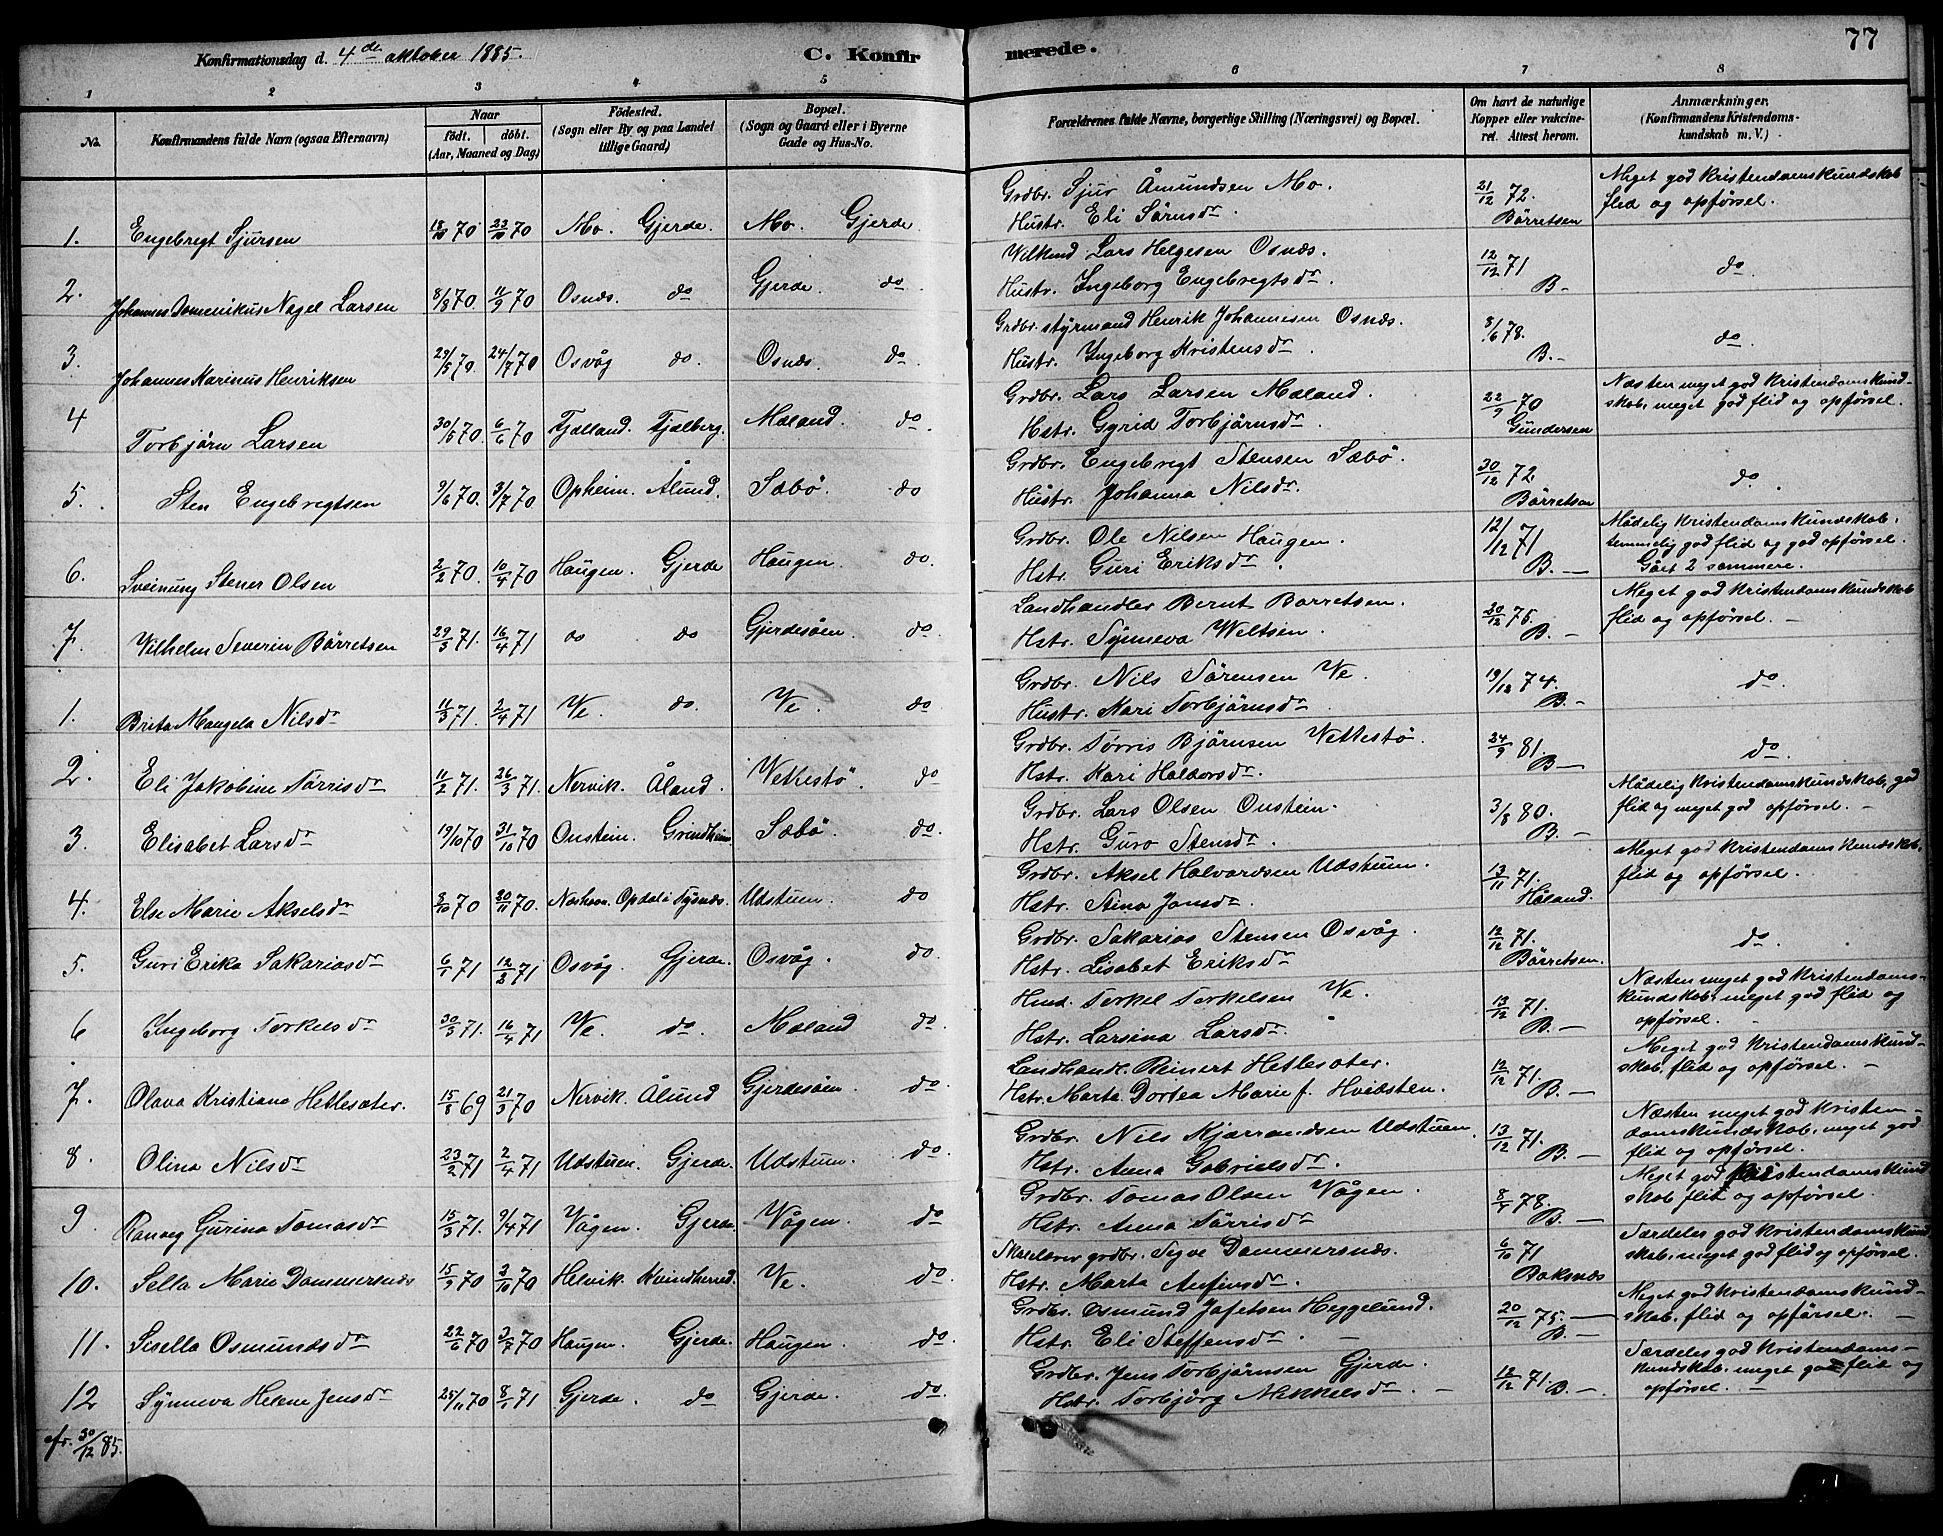 Konfirmationsdag d. 4de oktober 1885.
C. Konfir
merede.
77
1 2 3 4 5 6 7 8
No.
Konfirmandens fulde Navn (ogsaa Efternavn)
Naar
født. døbt.
(Aar, Maaned og Dag)
Födested.
(Sogn eller By og paa Landet
tillige Gaard)
Bopæl.
(Sogn og Gaard eller i Byerne
Gade og Hus-No.
Forældrenes fulde Navne, borgerlige Stilling (Næringsvei) og Bopæl.
Om havt de naturlige
Kopper eller vakcine-
ret. Attest herom.
Anmærkninger.
(Konfirmandens Kristendoms-
kundskab m. V.)
1. Engebregt Sjursen 70 70 Mo. Gjerde. Mo. Gjerde.
Grdbr. Sjur Åmundsen Mo.
Hustr. Eli Sørnsdr.
21/12 72. Børretsen
Meget god kristendomskundskab
flid og opførsel.
2. Johannes Domenikus Nagel Larsen 8/8 70. 11/9 70 Osnæs. do Gjerde. do.
Lars Helgesen Osnæs.
Hustr. Ingeborg Engebregtsdr.
12/12 71 B.
do.
3. Johannes Karinus Henriksen 29/5 70. 24/7 70 Osvåg do. Osnæs. do.
Grdbr. styrmand Henrik Johannesen Osnæs.
Hustr. Ingeborg Kristensdr.
8/6 78. B.-
do.
4 Torbjørn Larsen 30/5 70. 6/6 70 Fjælland. Fjælberg. Mæland. do.
Grdbr. Lars Larsen Mæland.
Hstr. Gyrid Torbjørnsdr.
22/9 70 Gundersen
Næsten meget god kristendomskund-
skab, meget god flid og opførsel.
5. Sten Engebregtsen 9/6 70. 3/7 70 Opheim. Ålund. Sæbø. do
Grdbr. Engebregt Stensen Sæbø.
Hustr. Johanna Nilsdr.
30/12 72 Børretsen
do.
6. Sveinung Stener Olsen 2/2 70. 10/4 70 Haugen. Gjerde Haugen. do.
Grdbr. Ole Nilsen Haugen.
Hstr. Guri Eriksdr.
12/12 71 B.-
Mådelig kristendomskundskab,
temmelig god flid og god opførsel.
Gået 2 sommere.
7. Vilhelm Severin Børretsen 29/3 71. 16/4 71 do do Gjerdesøen. do
Landhandler Bernt Børretsen.
Hstr. Synneva Weltsen.
20/12 75. B.-
Meget god kristendomskundskab
flid og opførsel.-
1. Brita Mangela Nilsdr 11/3 71. 2/4 71 Ve. do. Ve. do
Grdbr. Nils Sørensen Ve.
Hustr. Kari Torbjørnsdr
19/12 74. B.-
do.
2. Eli Jakobine Tørrisdr 11/2 71. 26/3 71. Nervik. Åland. Vettestø. do
Grdbr. Tørris Bjørnsen Vettestø.
Hstr. Kari Haldorsdr.
24/9 81. B-
do.
3. Elisabet Larsdr 19/10 70 31/10 70 Onstein. Grindheim Sæbø. do.
Grdbr. Lars Olsen Onstein.
Hstr. Guro Stensdr.
3/8 80. B.-
Mådelig kristendomskundskab, god
flid og meget god opførsel.-
4. Else Marie Akselsdr 70 70. Opdal i Tysnæs. Udstuen. do
Grdbr. Aksel Halvardsen Udstuen.
Hstr. Stina Jansdr.
13/11 71. Håland.
Meget god kristendomskundskab,
flid og opførsel.
5. Guri Erika Sakariasdr 6/1 71 12/2 71 Osvåg. Gjerde. Osvåg. do.
Grdbr. Sakarias Stensen Osvåg.
Hstr. Lisabet Eriksdr
12/12 71. Børretsen.
do.
6 Ingeborg Torkelsdr 30/3 71. 16/4 71 Ve. do. Mæland do.
Hmd. Torkel Torkelsen Ve.
Hstr. Larsina Larsdr.
13/12 71. B.-
Næsten meget god kristendoms-
kundskab, meget god flid og
opførsel.
7. Olava Kristiana Hettesæter. 15/8 69 21/3 70 Nervik. Ålund Gjerdesøen. do.
Landhandl. Reinert Hettesæter.
Hstr. Marta Dortea Marie f. Hvidsten.
12/12 71. B.-
Meget god kristendomskund-
skab, flid og opførsel.-
8. Olina Nilsdr 23/2 71 2/4 71 Udstuen. Gjerde. Udstuen. do.
Grdbr. Nils Kjærrandsen Udstuen.
Hstr. Anna Gabrielsdr.
13/12 71. B.-
Næsten meget god kristen-
domskundskab, meget god
flid og opførsel.
9. Ranveg Gurina Tomasdr 15/3 71. 9/4 71 Vågen. Gjerde. Vågen. do
Grdbr. Tomas Olsen Vågen.
Hstr. Anna Tørrisdr
78. B.-
Meget god kristendomskund
skab, flid og opførsel.
10. Sella Marie Dommersnæs 15/9 70 2/10 70 Helvik. Kvindherred. Ve. do.
grdbr. Segve Dommersnæs.
Hstr. Marta Anfinsdr.
6/10 71 Baksnæs
Særdeles god kristendomskund
skab, meget god flid og opførsel.
11. Sisella Osmundsdr 22/6 70 3/7 70 Haugen. Gjerde. Haugen. do.
Grdbr. Osmund Jafetsen Heggelund.
Hstr. Eli Steffensdr.
20/12 75.- B-
Meget god kristendomskund-
skab, flid og opførsel.-
12 Synneva Helene Jensdr 25/11 70 8/1 71 Gjerde. do Gjerde. do.
Grdbr. Jens Torbjørnsen Gjerde.
Hstr. Torbjørg Mikkelsdr.-
12/12 71. B.-
Særdeles god kristendoms-
kundskab, meget god flid og
opførsel.-
fr. 30/12 85.